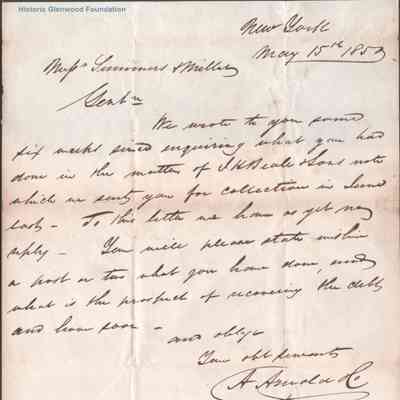 Historic Glenwood Foundation
New York
May 15th 1853
Messrs Summers & Miller
Gentn
We wrote to you some
six weeks since enquiring what you had
done in the matter of J H Beale & Sons note
which we sent you for collection in June
last - To this letter we have as yet no
reply - You will please state within
a post or two what you have done, and
what is the prospect of recovering the debt
and have soon -
and oblige
Your obt servants
A Arnold & Co